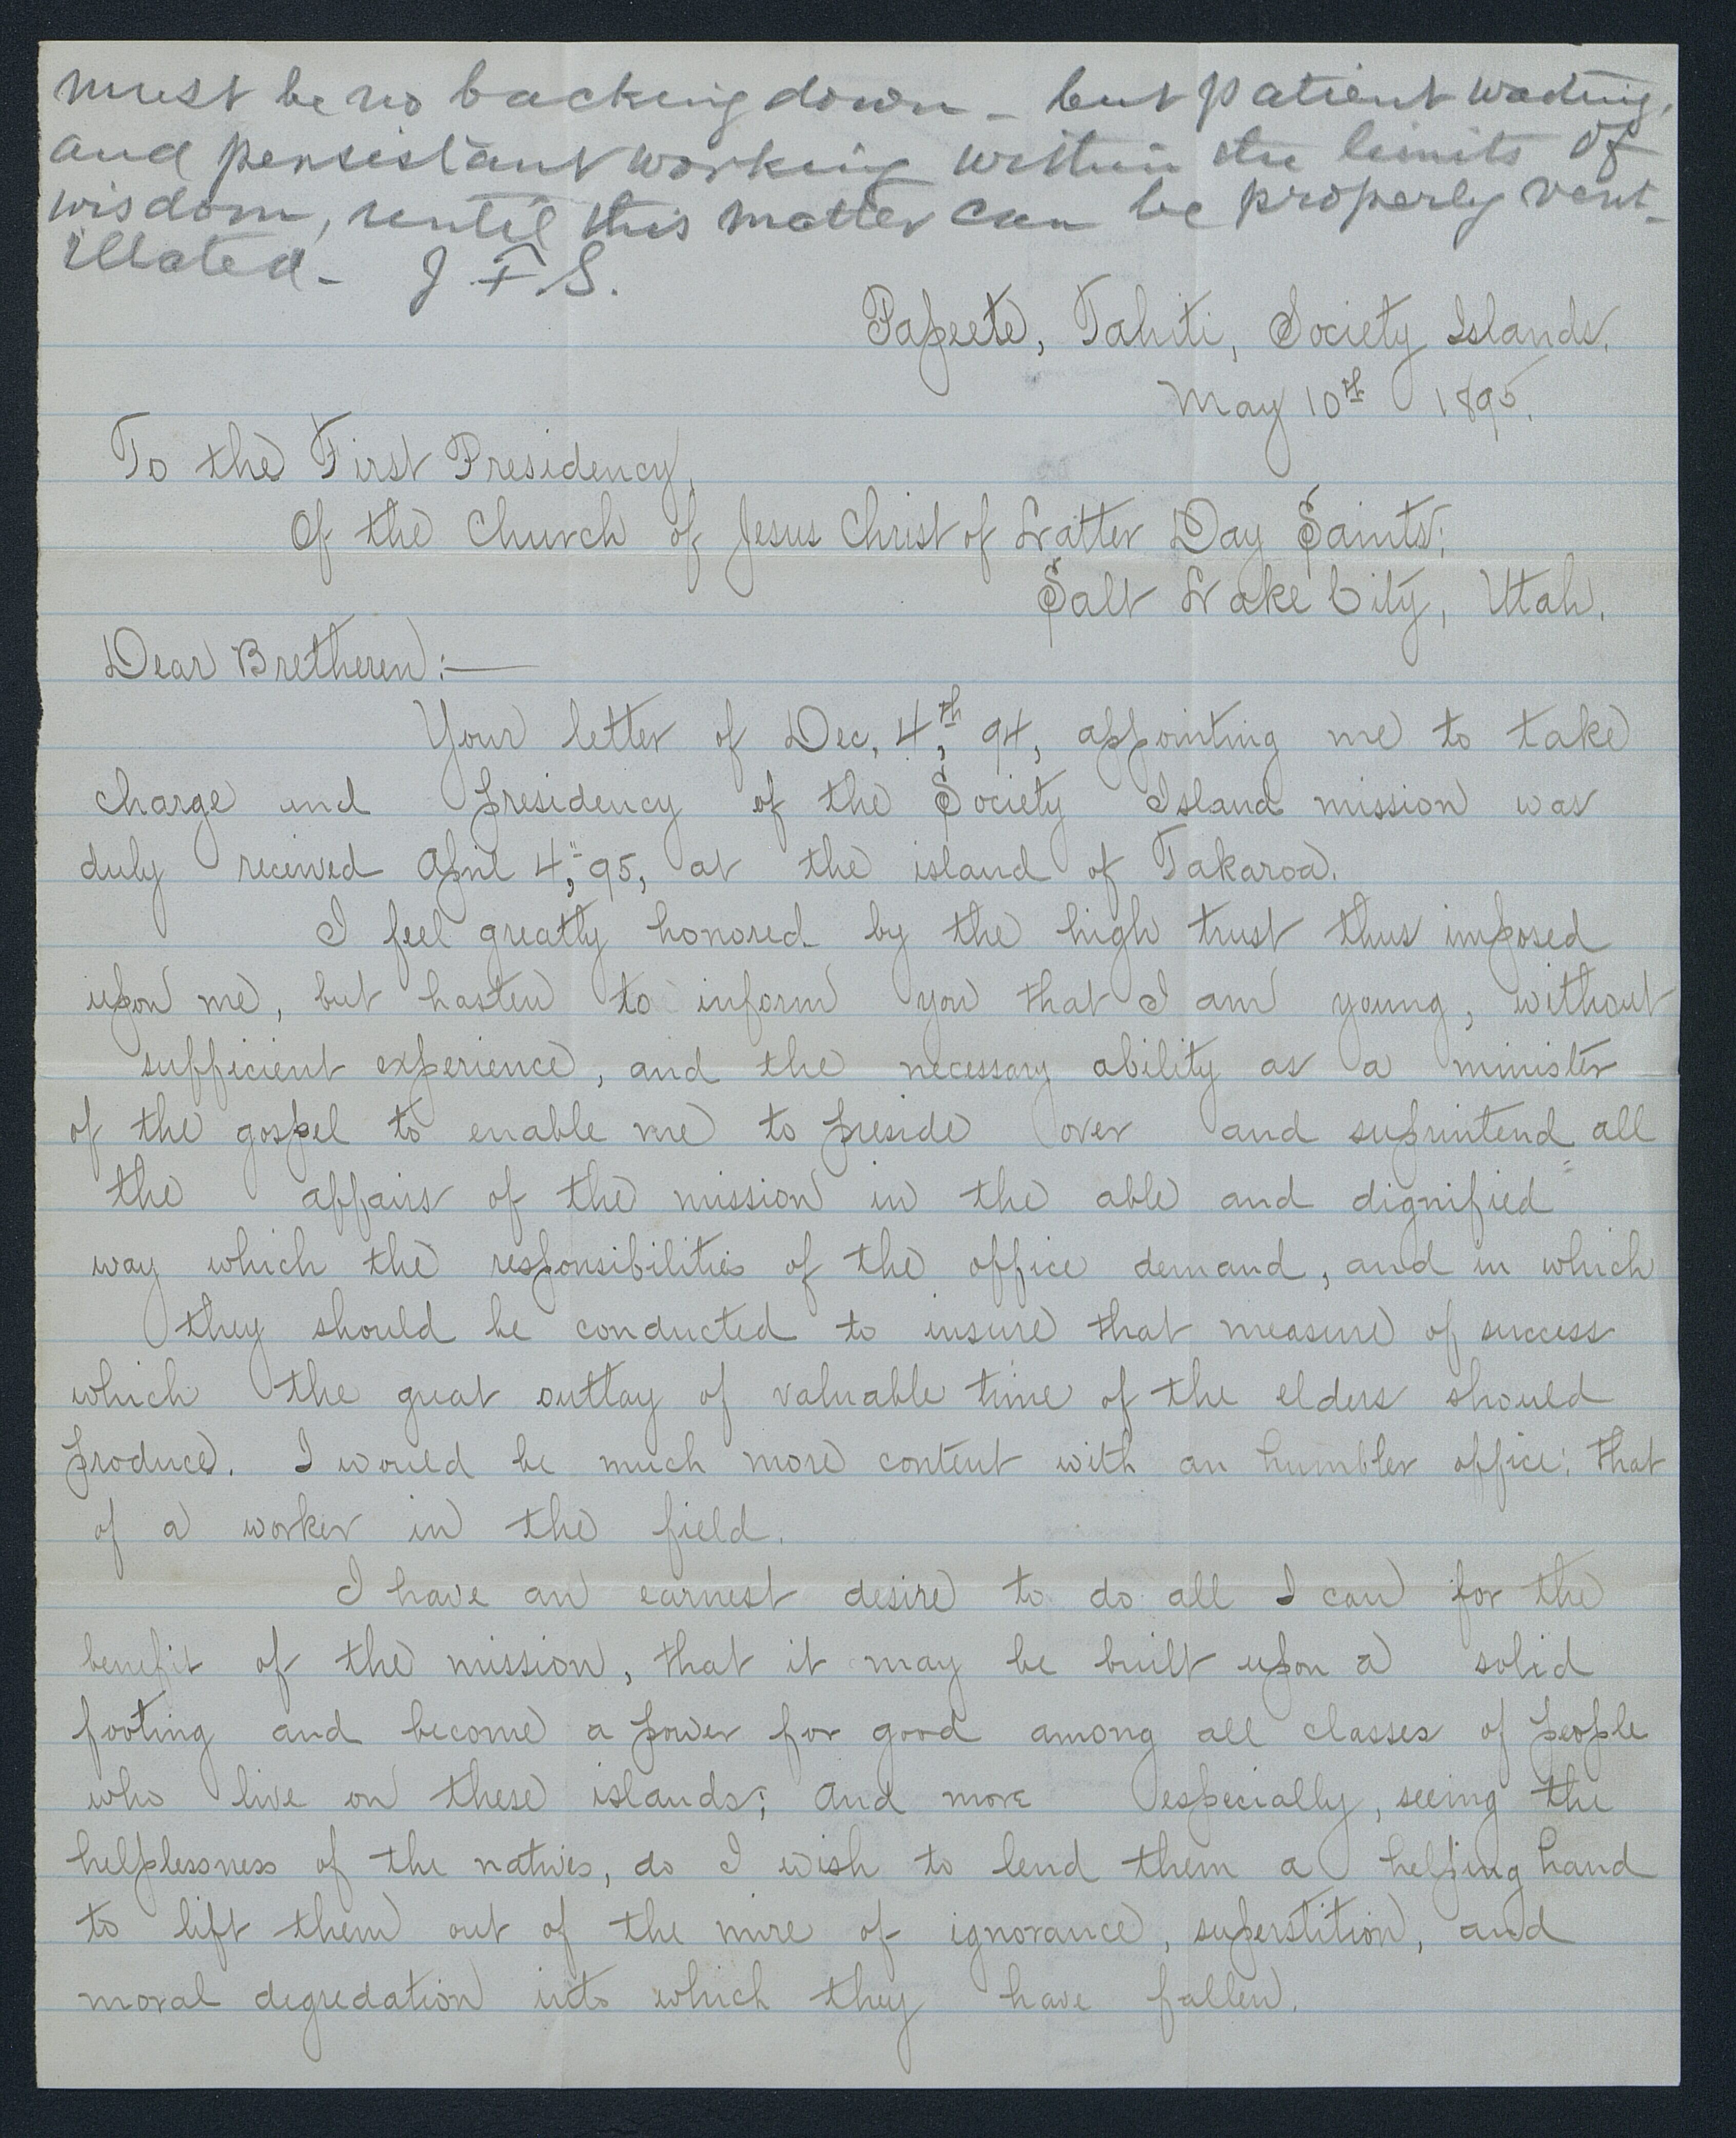 must be no backing down - but patient wading,
and persistant working within the limits of
wisdom, until this matter can be properly vent-
illated - J F. S.
Papeete, Tahiti, Society Islands.
May 10th 1895.
To the First Presidency,
Of the Church of Jesus Christ of Latter Day Saints;
Salt Lake City, Utah.
Dear Bretheren:—
Your letter of Dec, 4th, 94, appointing me to take
charge and presidency of the Society Island mission was
duly received April 4", 95, at the island of Takaroa.
I feel greatly honored by the high trust thus imposed
upon me, but hasten to inform you that I am young, without
sufficient experience, and the necessary ability as a minister
of the gospel to enable me to preside over and suprintend all
the affairs of the mission in the able and dignified
way which the responsibilities of the office demand, and in which
they should be conducted to insure that measure of success
which the great outlay of valuable time of the elders should
produce. I would be much more content with an humbler office: that
of a worker in the field.
I have an earnest desire to do all I can for the
benefit of the mission, that it may be built upon a solid
footing and become a power for good among all classes of people
who live on these islands; and more especially, seeing the
helplessness of the natives, do I wish to lend them a helping hand
to lift them out of the mire of ignorance, superstition, and
moral degredation into which they have fallen.